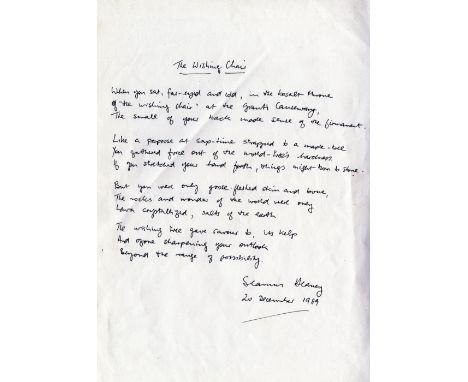 The Wishing Chair
When you sat, far-eyed and cold, in the basalt throne
Of "the wishing chair" at the Giant's Causeway,
The small of your back made sense of the firmament.
Like a papoose at sap-time strapped to a maple-tree
You gathered force out of the world-tree's hardness.
If you stretched your hand forth, things might turn to stone.
But you were only goose-fleshed skin and bone,
The rocks and wonder of the world were only
Lava crystallized, salts of the earth
The wishing chair gave savour to, its kelp
And ozone sharpening your outlook
Beyond the range of possibility.
Seamus Heaney
20 December 1989